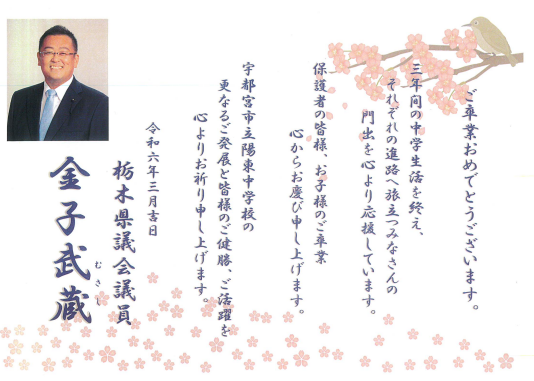 ご卒業おめでとうございます。
三年間の中学生活を終え、
それぞれの進路へ旅立つみなさんの
門出を心より応援しています。
保護者の皆様、お子様のご卒業
心からお慶び申し上げます。
宇都宮市立陽東中学校の
更なるご発展と皆様のご健勝、ご活躍を
心よりお祈り申し上げます。
令和六年三月吉日
栃木県議会議員
金子武蔵
むさし